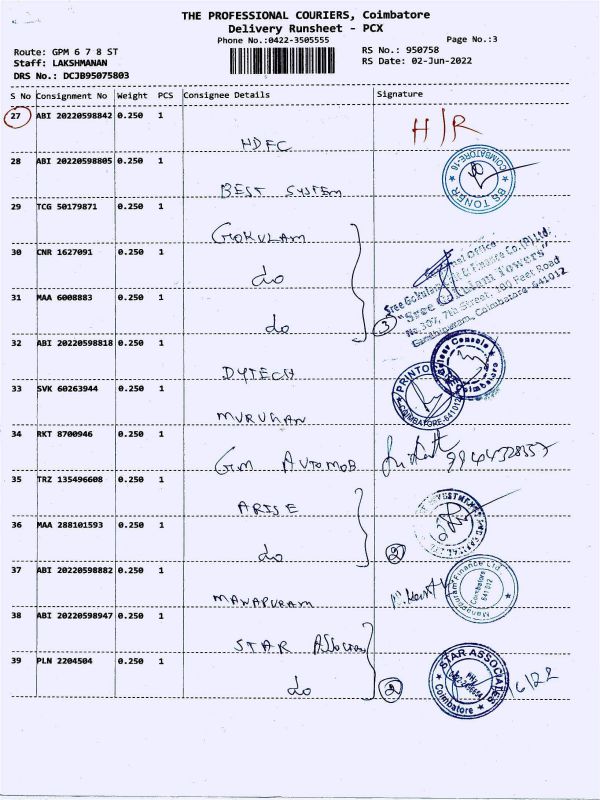 THE PROFESSIONAL COURIERS, Coimbatore
Delivery Runsheet - PCX
Phone No.:0422-3505555
Page No.:3
Route: GPM 6 7 8 ST
RS No.: 950758
Staff: LAKSHMANAN
RS Date: 02-Jun-2022
DRS No.: DCJB95075803
S No Consignment No Weight PCS Consignee Details Signature
27 ABI 20220598842 0.250 1
H/R
HDFC
28 ABI 20220598805 0.250 1
COIMBATORE-18
BS TONER
BEST SYSTEM
29 TCG 50179871 0.250 1
GOKULAM
30 CNR 1627091 0.250 1
do
31 MAA 6008883 0.250 1
do
3
Office
Sree Gokulam & Finance Co.(P)Ltd.
"Sree Gokulam Towers"
No 309, 7th Street, 100 Feet Road
Gandhipuram, Coimbatore-641012
32 ABI 20220598818 0.250 1
DYTECH
Console
Coimbatore
33 SVK 60263944 0.250 1
PRINTO
COIMBATORE-641012
MURUGAN
34 RKT 8700946 0.250 1
GM AUTOMOB
35 TRZ 135496608 0.250 1
ARISE
INVESTMENT
36 MAA 288101593 0.250 1
do
2
37 ABI 20220598882 0.250 1
MANAPURAM
Manappuram Finance Ltd
Coimbatore
641 012
38 ABI 20220598947 0.250 1
STAR Associa
39 PLN 2204504 0.250 1
do
2
STAR ASSOCIATES
Coimbatore
/6/22